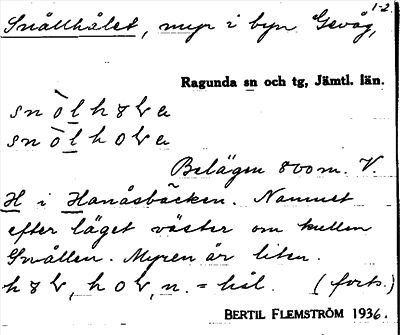 1-2.
Snållhålet, myr i byn Gevåg,
Ragunda sn och tg, Jämtl. län.
snòlh8lva
snòlholva
Belägen 800 m. V.
H i Hanåsbäcken. Namnet
efter läget väster om kullen
Snållen. Myren är liten.
h8lv, holv, n. = hål. (forts.)
BERTIL FLEMSTRÖM 1936.